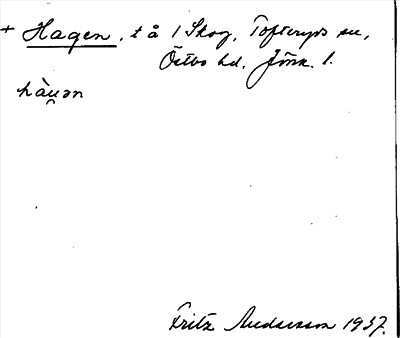 + Hagen, t å 1 Skog, Tofteryds sn,
Östbo hd. Jönk. l.
hàu̯ən
Fritz Andersson 1937.